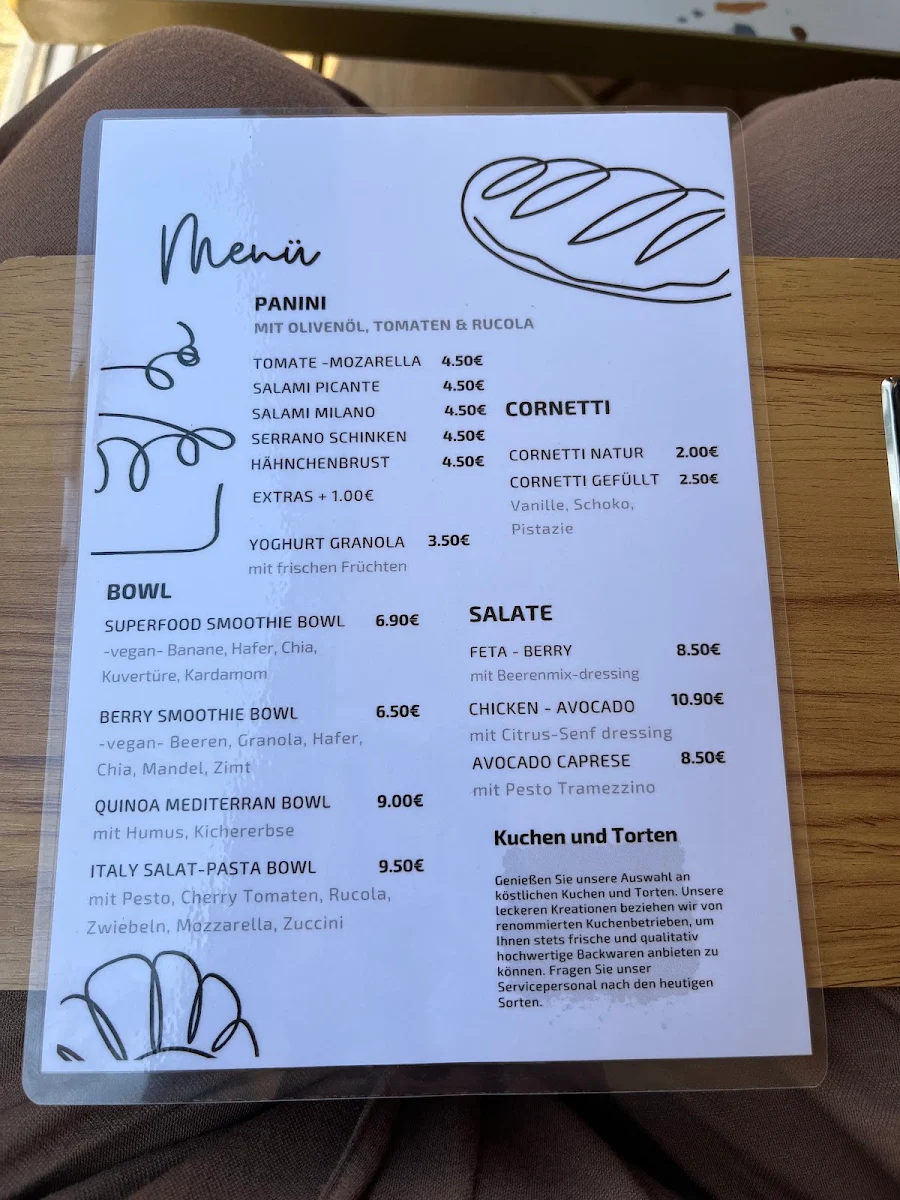 Menü
PANINI
MIT OLIVENÖL, TOMATEN & RUCOLA
TOMATE -MOZARELLA 4.50€
SALAMI PICANTE 4.50€
SALAMI MILANO 4.50€
SERRANO SCHINKEN 4.50€
HÄHNCHENBRUST 4.50€
EXTRAS + 1.00€
YOGHURT GRANOLA 3.50€
mit frischen Früchten
CORNETTI
CORNETTI NATUR 2.00€
CORNETTI GEFÜLLT 2.50€
Vanille, Schoko,
Pistazie
BOWL
SUPERFOOD SMOOTHIE BOWL 6.90€
-vegan- Banane, Hafer, Chia,
Kuvertüre, Kardamom
BERRY SMOOTHIE BOWL 6.50€
-vegan- Beeren, Granola, Hafer,
Chia, Mandel, Zimt
QUINOA MEDITERRAN BOWL 9.00€
mit Humus, Kichererbse
ITALY SALAT-PASTA BOWL 9.50€
mit Pesto, Cherry Tomaten, Rucola,
Zwiebeln, Mozzarella, Zuccini
SALATE
FETA - BERRY 8.50€
mit Beerenmix-dressing
CHICKEN - AVOCADO 10.90€
mit Citrus-Senf dressing
AVOCADO CAPRESE 8.50€
mit Pesto Tramezzino
Kuchen und Torten
Genießen Sie unsere Auswahl an
köstlichen Kuchen und Torten. Unsere
leckeren Kreationen beziehen wir von
renommierten Kuchenbetrieben, um
Ihnen stets frische und qualitativ
hochwertige Backwaren anbieten zu
können. Fragen Sie unser
Servicepersonal nach den heutigen
Sorten.